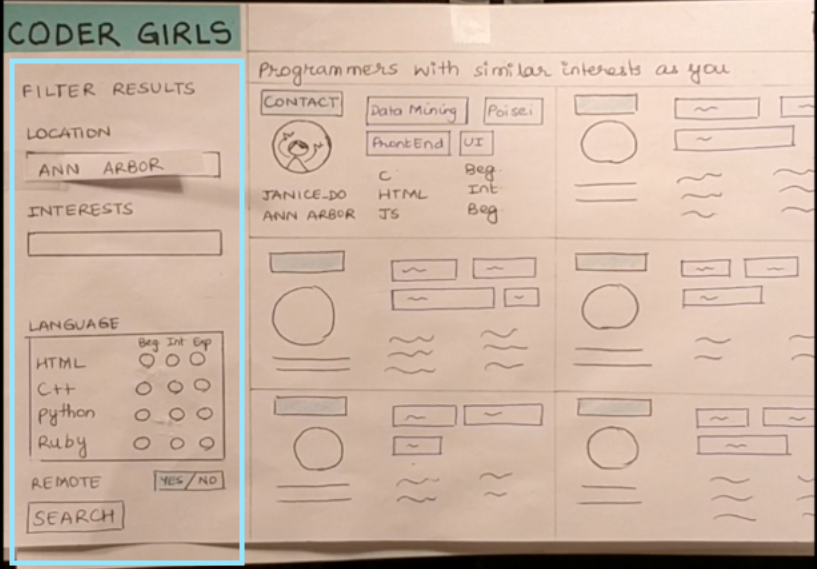 CODER GIRLS
FILTER RESULTS
LOCATION
ANN ARBOR
INTERESTS
LANGUAGE
Beg Int Exp
HTML
C++
python
Ruby
REMOTE YES/NO
SEARCH
Programmers with similar interests as you
CONTACT
Data Mining Poisei
FrontEnd UI
JANICE_DO
ANN ARBOR
C Beg
HTML Int
JS Beg